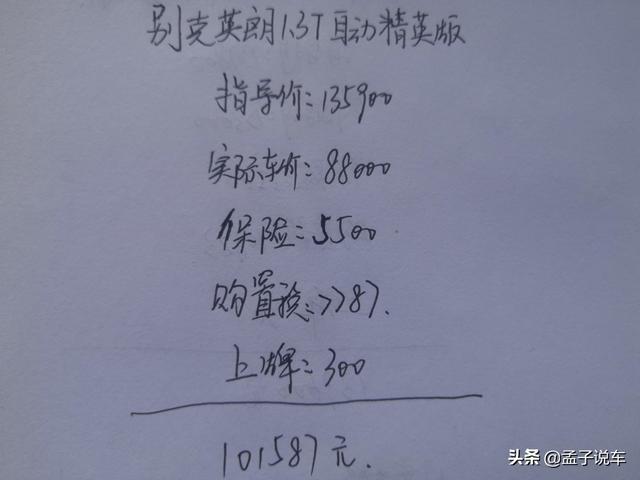 别克英朗1.3T自动精英版
指导价：135900
实际车价：88000
保险：5500
购置税：7787.
上牌：300
101587元.
头条 @孟子说车